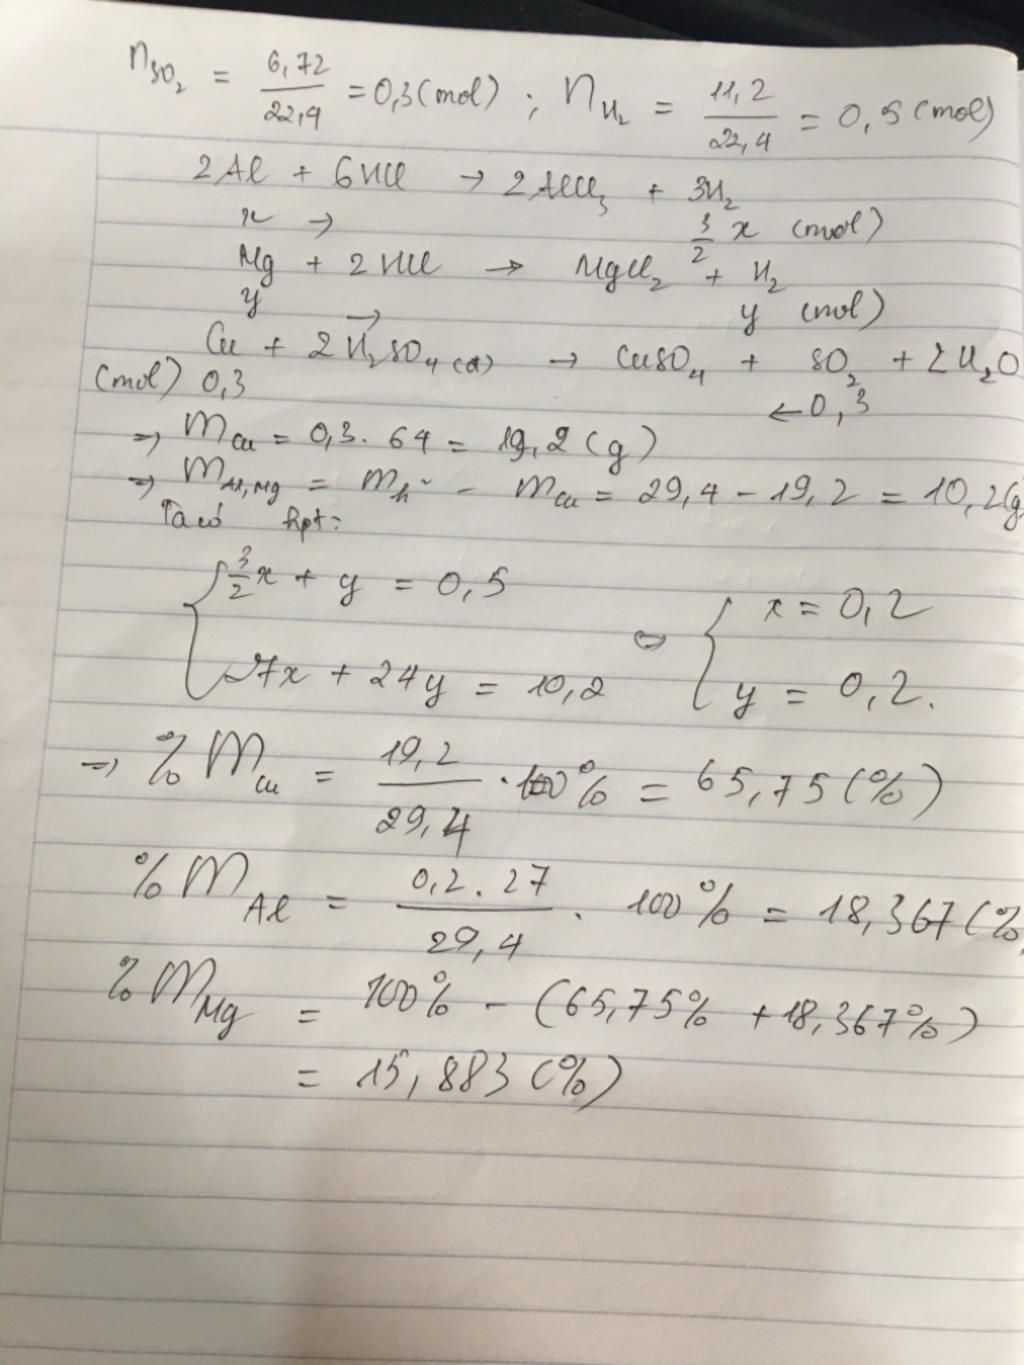 n_SO₂ = 6,72/22,4 = 0,3 (mol) ; n_H₂ = 11,2/22,4 = 0,5 (mol)
2Al + 6HCl → 2AlCl₃ + 3H₂
x → 3/2 x (mol)
Mg + 2HCl → MgCl₂ + H₂
y → y (mol)
Cu + 2H₂SO₄ (đ) → CuSO₄ + SO₂ + 2H₂O
(mol) 0,3 ← 0,3
⇒ m_Cu = 0,3 . 64 = 19,2 (g)
⇒ m_Al,Mg = m_h² - m_Cu = 29,4 - 19,2 = 10,2 (g
Ta có hpt:
{ 3/2 x + y = 0,5
27x + 24y = 10,2
⇔ { x = 0,2
y = 0,2.
⇒ % m_Cu = 19,2/29,4 . 100% = 65,75 (%)
% m_Al = 0,2 . 27/29,4 . 100% = 18,367 (%
% m_Mg = 100% - (65,75% + 18,367%)
= 15,883 (%)